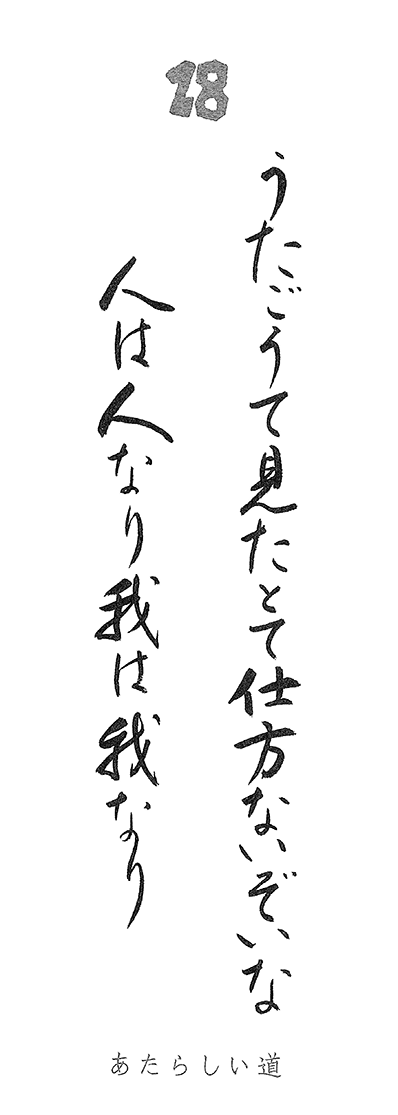 18
うたごうて見たとて仕方ないぞいな
人は人なり我は我なり
あたらしい道